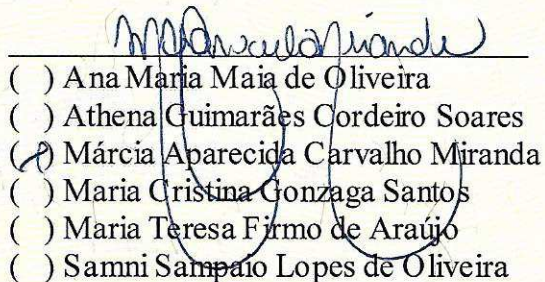 ( ) Ana Maria Maia de Oliveira
( ) Athena Guimarães Cordeiro Soares
( ) Márcia Aparecida Carvalho Miranda
( ) Maria Cristina Gonzaga Santos
( ) Maria Teresa Firmo de Araújo
( ) Samni Sampaio Lopes de Oliveira